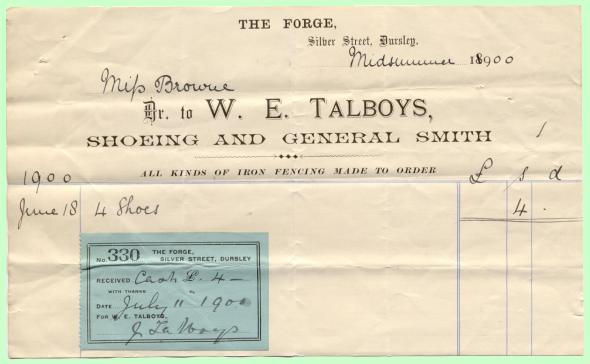 THE FORGE,
Silver Street, Dursley.
Midsummer 1900
Miss Browne
Dr. to W. E. TALBOYS,
SHOEING AND GENERAL SMITH
ALL KINDS OF IRON FENCING MADE TO ORDER
1900 £ s d
June 18 4 Shoes 4 .
No. 330 THE FORGE,
SILVER STREET, DURSLEY
RECEIVED Cash £. 4 –
WITH THANKS
DATE July 11 1900
FOR W. E. TALBOYS,
J Talboys